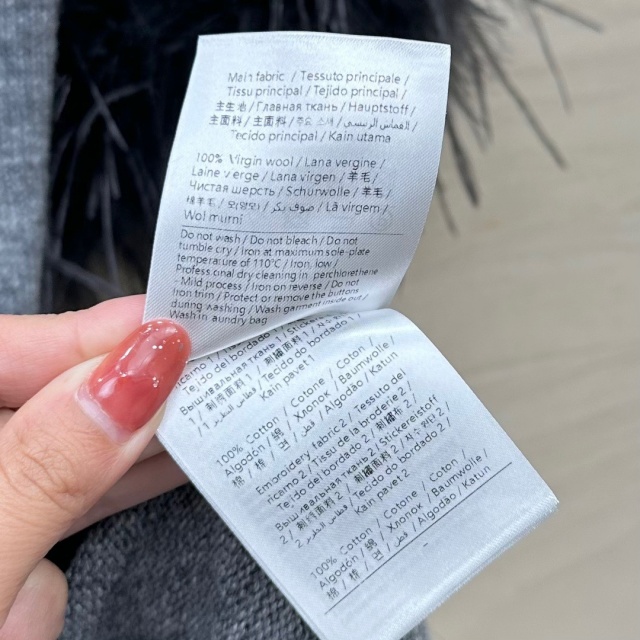 Main fabric / Tessuto principale /
Tissu principal / Tejido principal /
主生地 / Главная ткань / Hauptstoff /
主面料 / 主面料 / 주요 소재 / القماش الرئيسي /
Tecido principal / Kain utama
100% Virgin wool / Lana vergine /
Laine vierge / Lana virgen / 羊毛 /
Чистая шерсть / Schurwolle / 羊毛 /
绵羊毛 / 모(양모) / صوف بكر / Lã virgem /
Wol murni
Do not wash / Do not bleach / Do not
tumble dry / Iron at maximum sole-plate
temperature of 110°C / Iron, low /
Professional dry cleaning in perchlorethene
- Mild process / Iron on reverse / Do not
iron trim / Protect or remove the buttons
during washing / Wash garment inside out /
Wash in laundry bag
Tejido del bordado 1 /
Вышивальная ткань 1 /
1 / 刺绣面料 1 / Tecido do bordado 1 /
Kain pavet 1
100% Cotton / Cotone / Coton /
Algodón / 綿 / Хлопок / Baumwolle /
棉 / 棉 / 면 / قطن / Algodão / Katun
Embroidery fabric 2 / Tessuto del
ricamo 2 / Tissu de la broderie 2 /
Tejido del bordado 2 / 刺繍布 2 /
Вышивальная ткань 2 / Stickereistoff
2 / 刺绣面料 2 /
Tecido do bordado 2 /
Kain pavet 2
100% Cotton / Cotone / Coton /
Algodón / 綿 / Хлопок / Baumwolle /
棉 / 棉 / 면 / قطن / Algodão / Katun